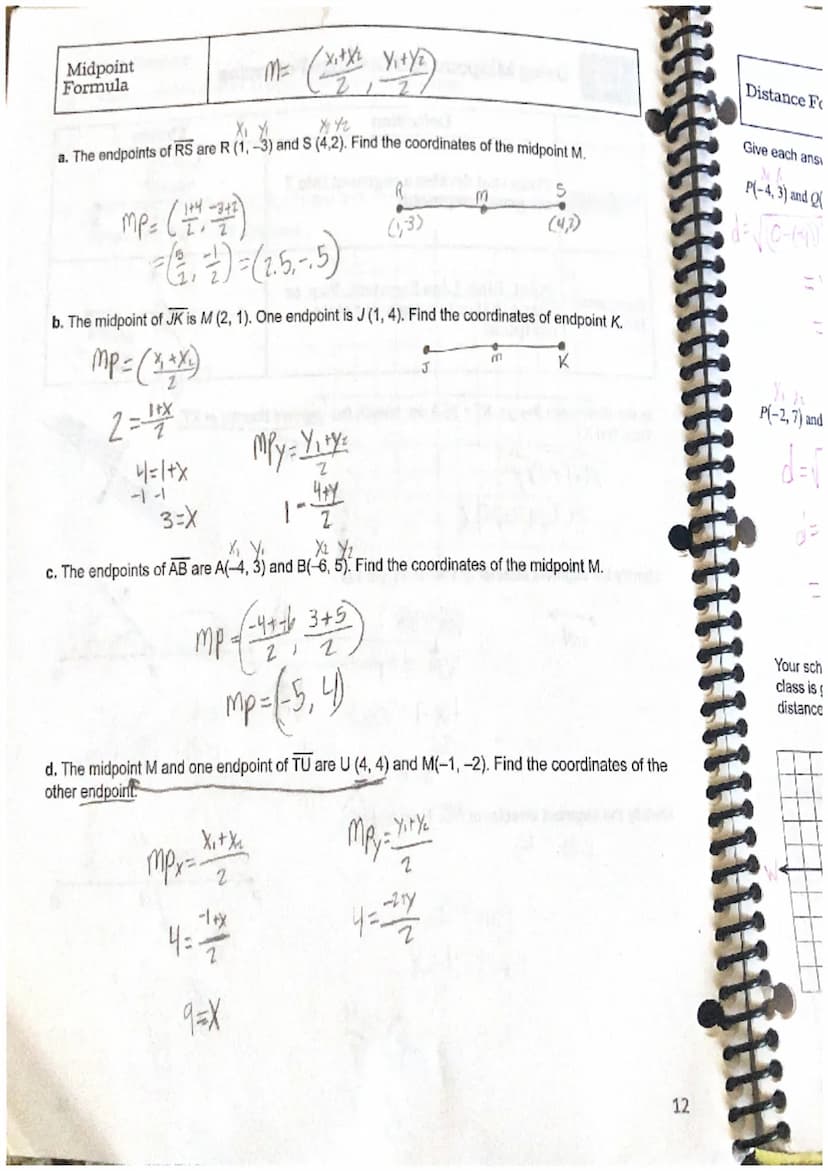 Midpoint
Formula
M= (x₁+x₂/2, y₁+y₂/2)
x₁ y₁ x₂ y₂
a. The endpoints of RS are R (1, –3) and S (4,2). Find the coordinates of the midpoint M.
R m S
(1,-3) (4,2)
MP= (1+4/2, -3+2/2)
=(5/2, -1/2)=(2.5,-.5)
b. The midpoint of JK is M (2, 1). One endpoint is J (1, 4). Find the coordinates of endpoint K.
J m K
MP=(x₁+x₂/2)
2=1+x/2
4=1+x
-1 -1
3=x
MPy=y₁+y₂/2
1=4+y/2
x₁ y₁ x₂ y₂
c. The endpoints of AB are A(–4, 3) and B(–6, 5). Find the coordinates of the midpoint M.
MP=(-4+-6/2, 3+5/2)
MP=(-5, 4)
d. The midpoint M and one endpoint of TU are U (4, 4) and M(–1, –2). Find the coordinates of the
other endpoint.
MPx=x₁+x₂/2
4=-1+x/2
9=x
MPy=y₁+y₂/2
4=-2+y/2
12
Distance
Give each
P(–4, 3) and Q(
d=√(0-(-4))
=
=
P(–2, 7) and
d=√
d=
=
Your sch
class is
distance
W